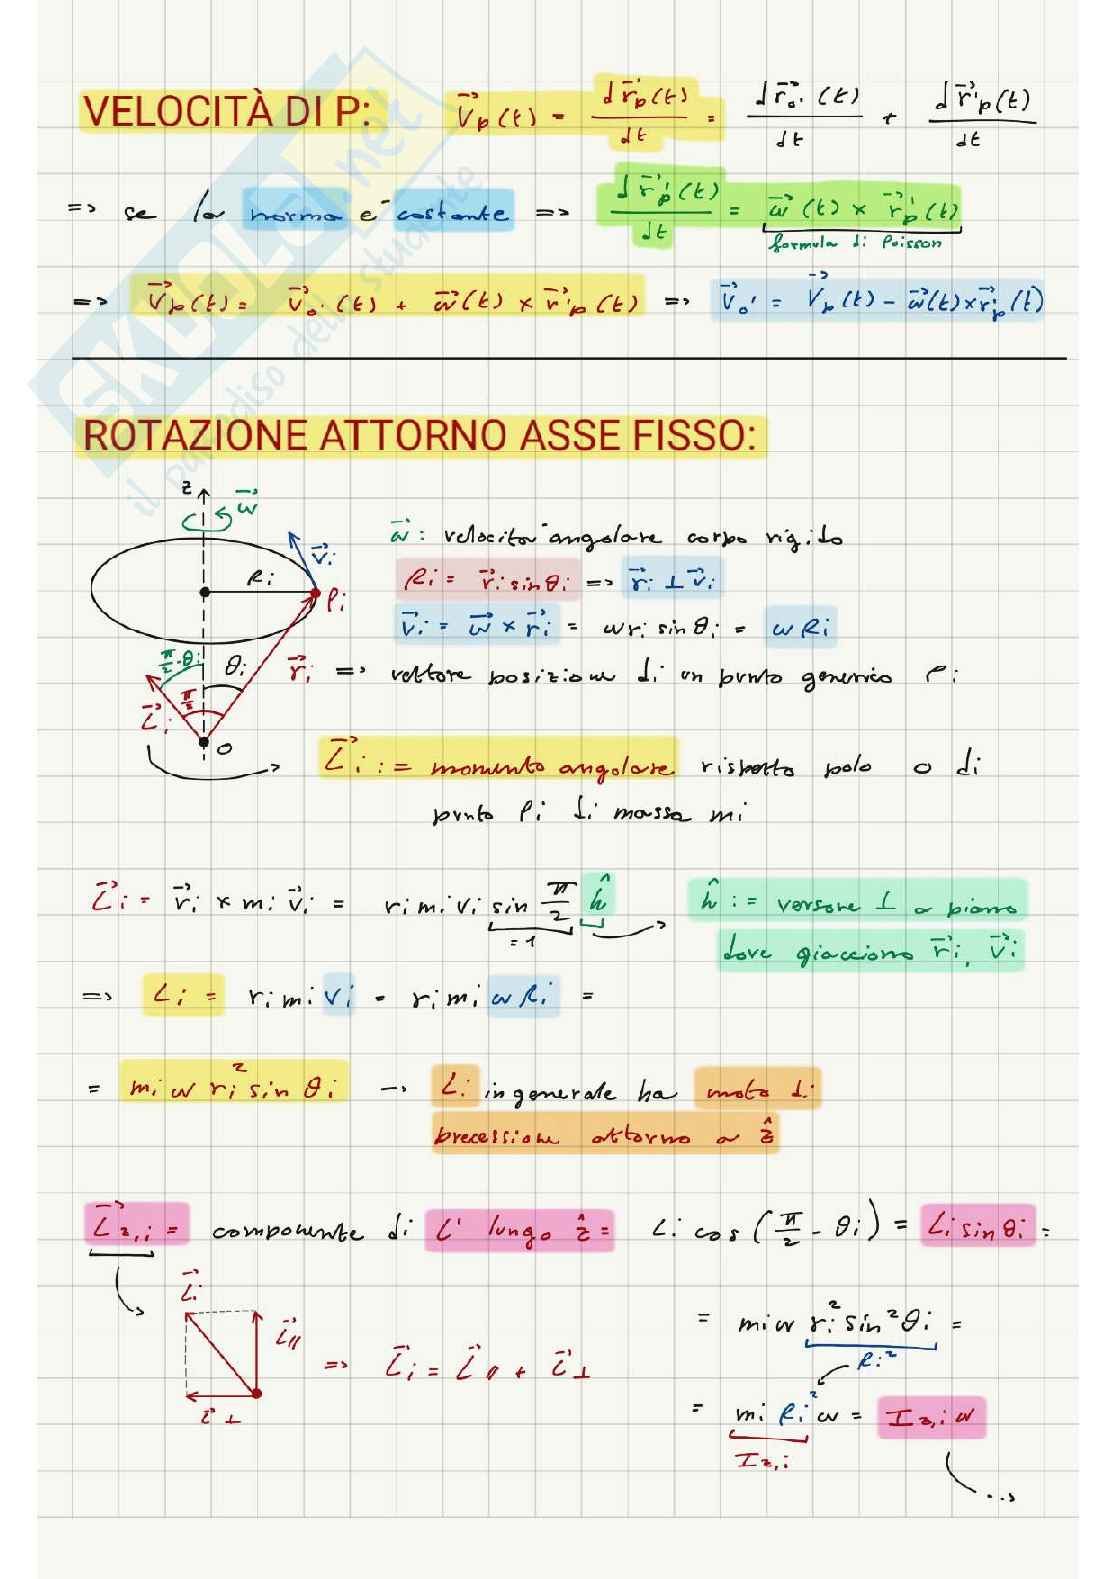 VELOCITÀ DI P: v⃗p(t) = dr⃗p(t)/dt = dr⃗o'(t)/dt + dr⃗'p(t)/dt
=> se la norma e' costante => dr⃗'p(t)/dt = w⃗(t) × r⃗'p(t)
formula di Poisson
=> v⃗p(t) = v⃗o'(t) + w⃗(t) × r⃗'p(t) => v⃗o' = v⃗p(t) - w⃗(t) × r⃗'p(t)
ROTAZIONE ATTORNO ASSE FISSO:
z w⃗
w⃗ : velocita' angolare corpo rigido
Ri v⃗i Pi
Ri = r⃗i sin θi => r⃗i ⊥ v⃗i
v⃗i = w⃗ × r⃗i = w ri sin θi = w Ri
π/2 - θi θi r⃗i => vettore posizione di un punto generico Pi
L⃗i π/2 O
L⃗i := momento angolare rispetto polo O di
punto Pi di massa mi
L⃗i = r⃗i × mi v⃗i = ri mi vi sin π/2 ĥ ĥ := versore ⊥ a piano
= 1
dove giacciono r⃗i, v⃗i
=> Li = ri mi vi = ri mi w Ri =
= mi w ri² sin θi -> Li in generale ha moto di
precessione attorno a ẑ
L⃗z,i = componente di L lungo ẑ = Li cos (π/2 - θi) = Li sin θi =
L⃗i L⃗// L⃗⊥
= mi w ri² sin² θi =
Ri²
=> L⃗i = L⃗// + L⃗⊥
= mi Ri² w = Iz,i w
Iz,i
...
SKUOLA.net
il paradiso dello studente